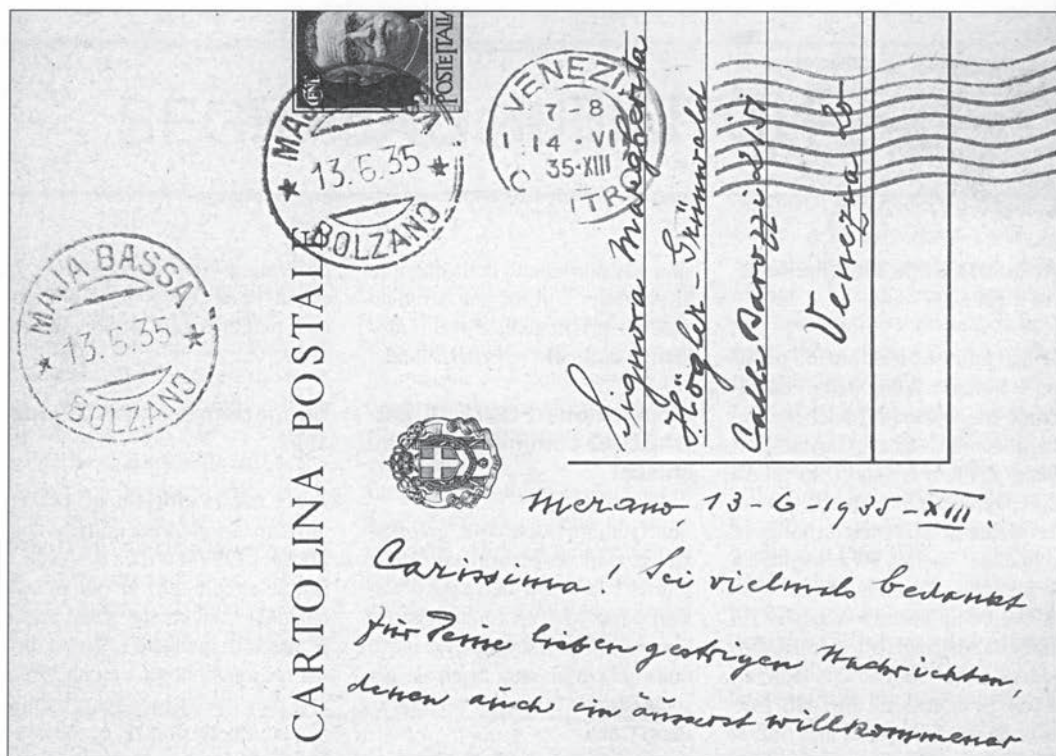 CENT
POSTE ITAL
MAJ
13.6.35
BOLZANO
VENEZI
7-8
14·VI
35·XIII
MAJA BASSA
13.6.35
BOLZANO
CARTOLINA POSTALE
Signora Margherita
Högler Grünwald
Calle
Venezia
Merano, 13-6-1935-XIII.
Carissima! Sei vielmals bedankt
für Deine lieben gestrigen Nachrichten,
denen auch ein äusserst willkommener